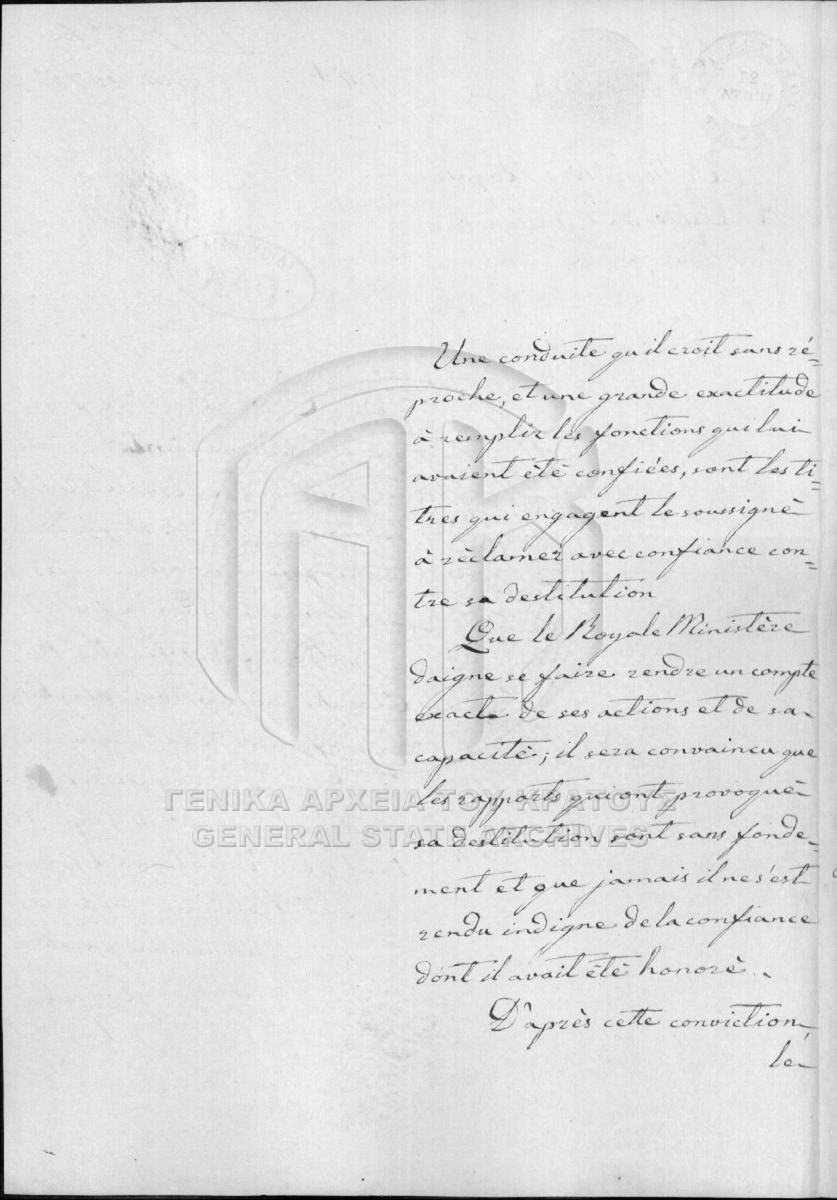 Une conduite qu'il croit sans ré=
proche, et une grande exactitude
à remplir les fonctions qui lui
avaient été confiées, sont les ti=
tres qui engagent le soussigné
à réclamer avec confiance con=
tre sa destitution
Que le Royale Ministère
daigne se faire rendre un compte
exacte de ses actions et de sa
capacité; il sera convaincu que
les rapports qui ont provoqué
sa destitution sont sans fonde=
ment et que jamais il ne s'est
rendu indigne de la confiance
dont il avait été honoré.
D'après cette conviction
le
ΓΕΝΙΚΑ ΑΡΧΕΙΑ ΤΟΥ ΚΡΑΤΟΥΣ
GENERAL STATE ARCHIVES